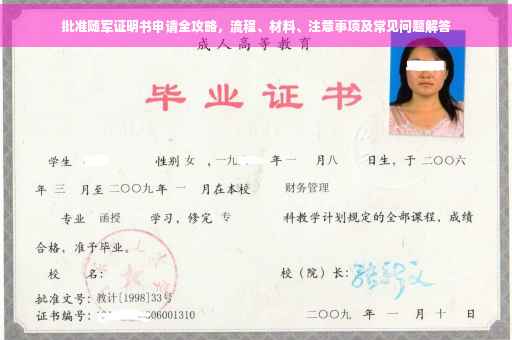 批准随军证明书申请全攻略，流程、材料、注意事项及常见问题解答
成人高等教育
毕业证书
学生 性别 女 ，一九 年 一 月八 日生，于 二〇〇六
年 三 月至二〇〇九年 一 月在本校 财务管理
专业 函授 学习，修完 专 科教学计划规定的全部课程，成绩
合格，准予毕业。
校 名： 校（院）长：
批准文号：教计[1998]33号
证书编号： 06001310 二〇〇九 年 一 月 十 日